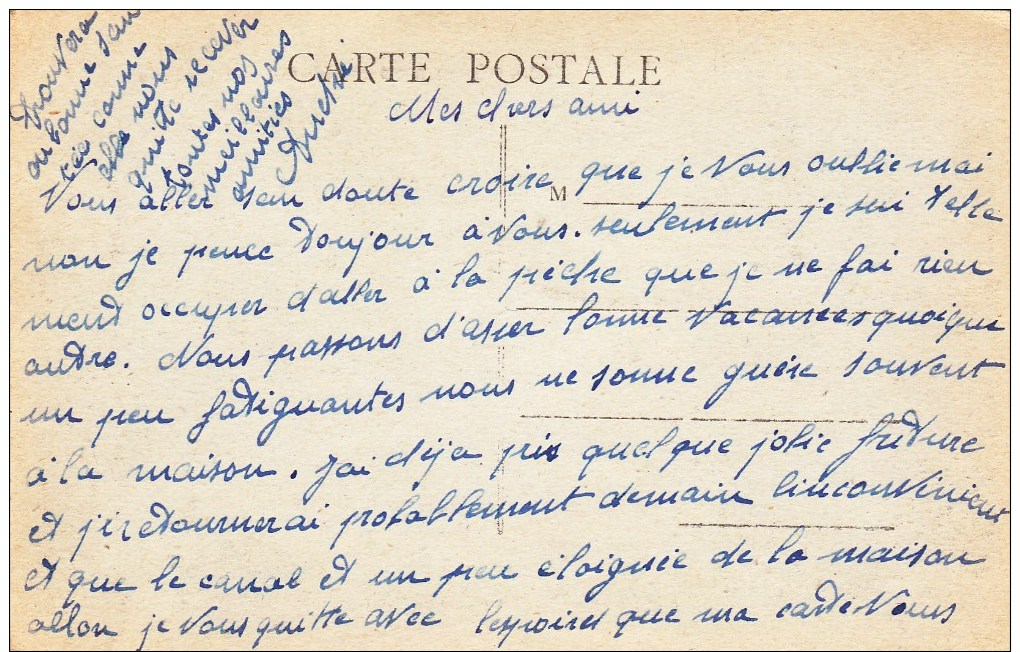 CARTE POSTALE
Mes chers ami
Vous aller san doute croire que je vous oublie mai
M
non je pence toujour à vous. seulement je sui telle
ment occuper d'aller à la pêche que je ne fai rien
autre. Nous passons d'asser bonne vacances quoique
un peu fatiguantes nous ne somme guère souvent
à la maison. J'ai déja pris quelque jolie friture
et j'i retournerai probablement demain l'inconvénient
et que le canal et un peu éloignée de la maison
allon je vous quitte avec l'espoire que ma carte vous
trouvera
en bonne san
tée comme
elle nous
quitte recever
toutes nos
meillaures
amitiés